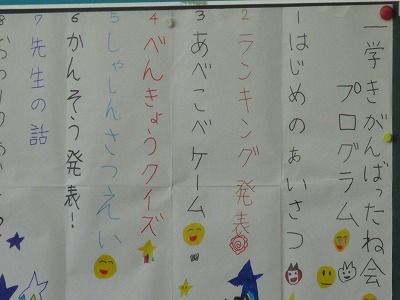 一学きがんばったね会
プログラム
1 はじめのあいさつ
2 ランキング発表
3 あべこべゲーム
4 べんきょうクイズ
5 しゃしんさつえい
6 かんそう発表!
7 先生の話
8